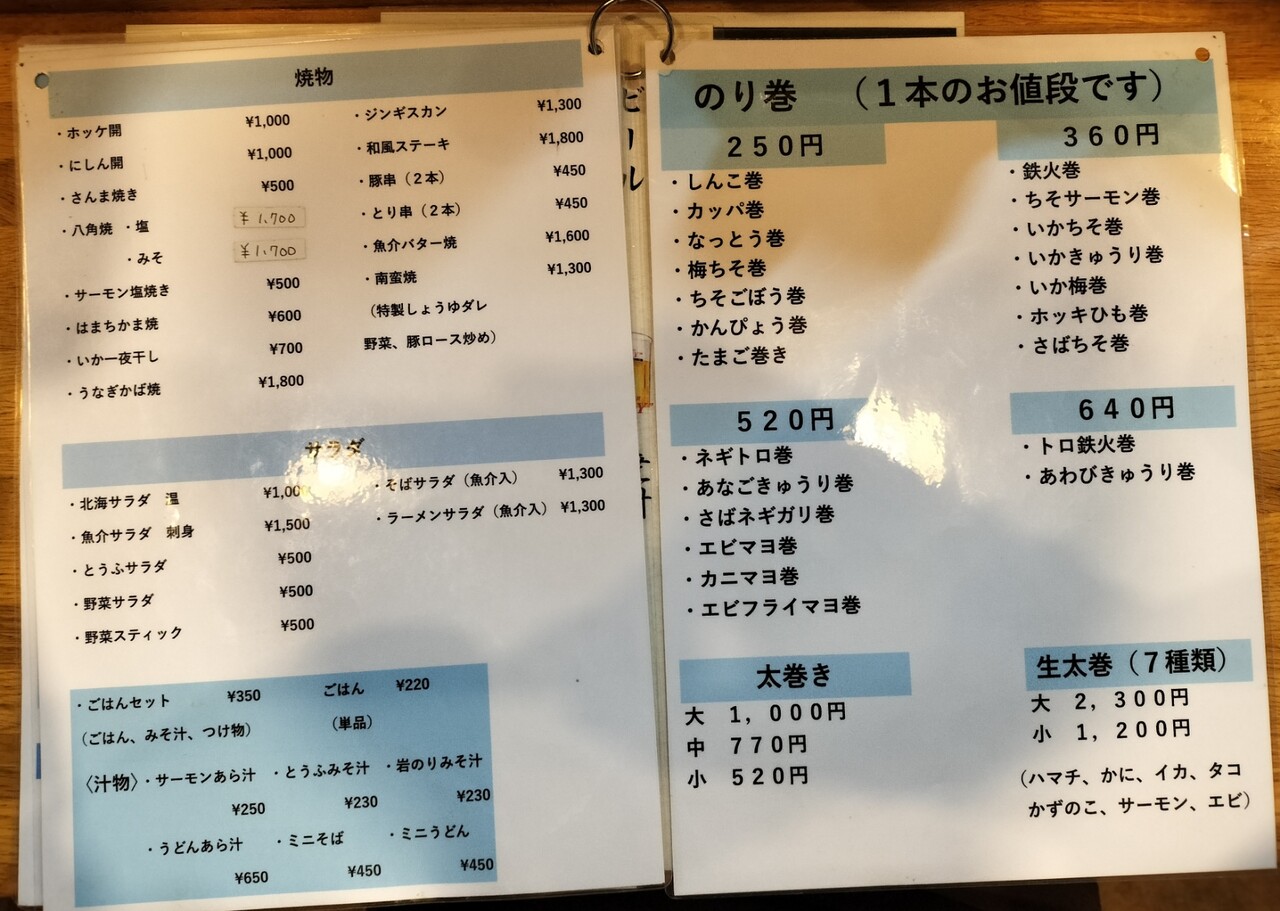 焼物
・ホッケ開 ¥1,000
・にしん開 ¥1,000
・さんま焼き ¥500
・八角焼 ・塩 ¥1,700
・みそ ¥1,700
・サーモン塩焼き ¥500
・はまちかま焼 ¥600
・いか一夜干し ¥700
・うなぎかば焼 ¥1,800
・ジンギスカン ¥1,300
・和風ステーキ ¥1,800
・豚串（２本） ¥450
・とり串（２本） ¥450
・魚介バター焼 ¥1,600
・南蛮焼 ¥1,300
（特製しょうゆダレ
野菜、豚ロース炒め）
サラダ
・北海サラダ　温 ¥1,000
・魚介サラダ　刺身 ¥1,500
・とうふサラダ ¥500
・野菜サラダ ¥500
・野菜スティック ¥500
・そばサラダ（魚介入） ¥1,300
・ラーメンサラダ（魚介入） ¥1,300
・ごはんセット ¥350 ごはん ¥220
（ごはん、みそ汁、つけ物） （単品）
〈汁物〉・サーモンあら汁 ・とうふみそ汁 ・岩のりみそ汁
¥250 ¥230 ¥230
・うどんあら汁 ・ミニそば ・ミニうどん
¥650 ¥450 ¥450
のり巻　（１本のお値段です）
２５０円
・しんこ巻
・カッパ巻
・なっとう巻
・梅ちそ巻
・ちそごぼう巻
・かんぴょう巻
・たまご巻き
３６０円
・鉄火巻
・ちそサーモン巻
・いかちそ巻
・いかきゅうり巻
・いか梅巻
・ホッキひも巻
・さばちそ巻
５２０円
・ネギトロ巻
・あなごきゅうり巻
・さばネギガリ巻
・エビマヨ巻
・カニマヨ巻
・エビフライマヨ巻
６４０円
・トロ鉄火巻
・あわびきゅうり巻
太巻き
大　１，０００円
中　７７０円
小　５２０円
生太巻（７種類）
大　２，３００円
小　１，２００円
（ハマチ、かに、イカ、タコ
かずのこ、サーモン、エビ）